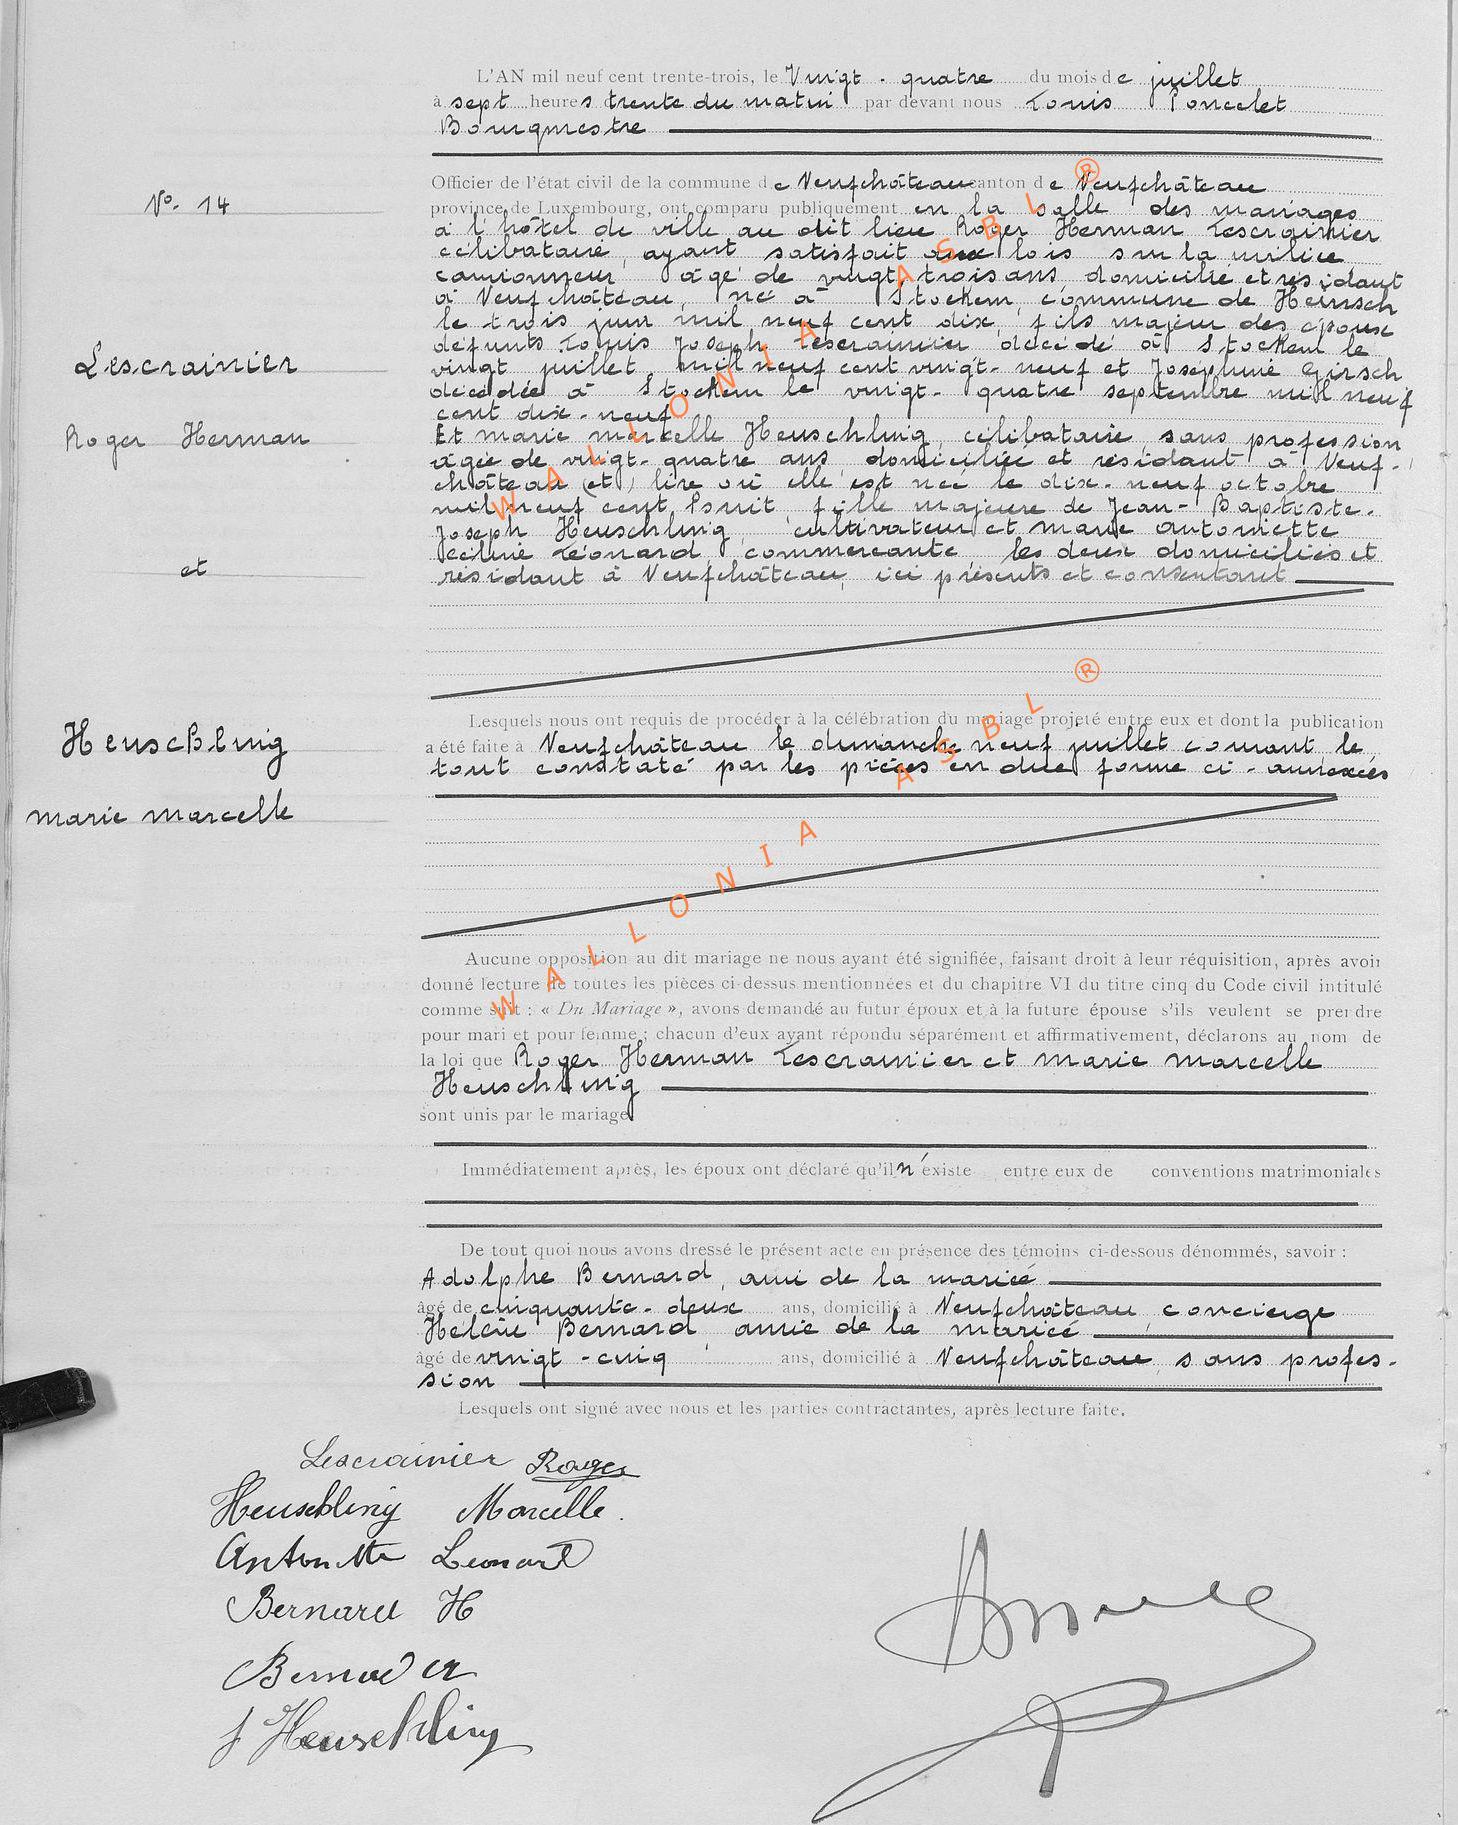 L'AN mil neuf cent trente-trois, le Vingt - quatre du mois de juillet
à sept heures trente du matin par devant nous Louis Poncelet
Bourgmestre
Officier de l'état civil de la commune de Neufchâteau canton de Neufchâteau
province de Luxembourg, ont comparu publiquement en la salle des mariages
à l'hôtel de ville au dit lieu Roger Herman Lescrainier
célibataire, ayant satisfait aux lois sur la milice
camionneur âgé de vingt trois ans, domicilié et résidant
à Neufchâteau, né à Stockem, commune de Heinsch
le trois juin mil neuf cent dix, fils majeur des époux
défunts Louis Joseph Lescrainier décédé à Stockem le
vingt juillet mil neuf cent vingt-neuf et Joséphine Girsch
décédée à Stockem le vingt-quatre septembre mil neuf
cent dix-neuf
Et marie marcelle Heuschling, célibataire sans profession
âgée de vingt-quatre ans domiciliée et résidant à Neuf-
château (et) lire où elle est née le dix-neuf octobre
mil neuf cent huit fille majeure de Jean-Baptiste-
Joseph Heuschling, cultivateur et marie antoinette
Céline Léonard commerçante, les deux domiciliés et
résidant à Neufchâteau, ici présents et consentant
N°. 14
Lescrainier
Roger Herman
et
Heuschling
marie marcelle
Lesquels nous ont requis de procéder à la célébration du mariage projeté entre eux et dont la publication
a été faite à Neufchâteau le dimanche neuf juillet courant le
tout constaté par les pièces en due forme ci-annexées
Aucune opposition au dit mariage ne nous ayant été signifiée, faisant droit à leur réquisition, après avoir
donné lecture de toutes les pièces ci-dessus mentionnées et du chapitre VI du titre cinq du Code civil intitulé
comme suit : « Du Mariage », avons demandé au futur époux et à la future épouse s'ils veulent se prendre
pour mari et pour femme ; chacun d'eux ayant répondu séparément et affirmativement, déclarons au nom de
la loi que Roger Herman Lescrainier et marie marcelle
Heuschling
sont unis par le mariage
Immédiatement après, les époux ont déclaré qu'il n'existe entre eux de conventions matrimoniales
De tout quoi nous avons dressé le présent acte en présence des témoins ci-dessous dénommés, savoir :
Adolphe Bernard, ami de la mariée
âgé de cinquante-deux ans, domicilié à Neufchâteau, concierge
Hélène Bernard, amie de la mariée
âgé de vingt-cinq ans, domicilié à Neufchâteau, sans profes-
sion
Lesquels ont signé avec nous et les parties contractantes, après lecture faite.
Lescrainier Roger
Heuschling Marcelle.
Antoinette Léonard
Bernard H
Bernard A
J Heuschling
WALLONIA ASBL ®
WALLONIA ASBL ®